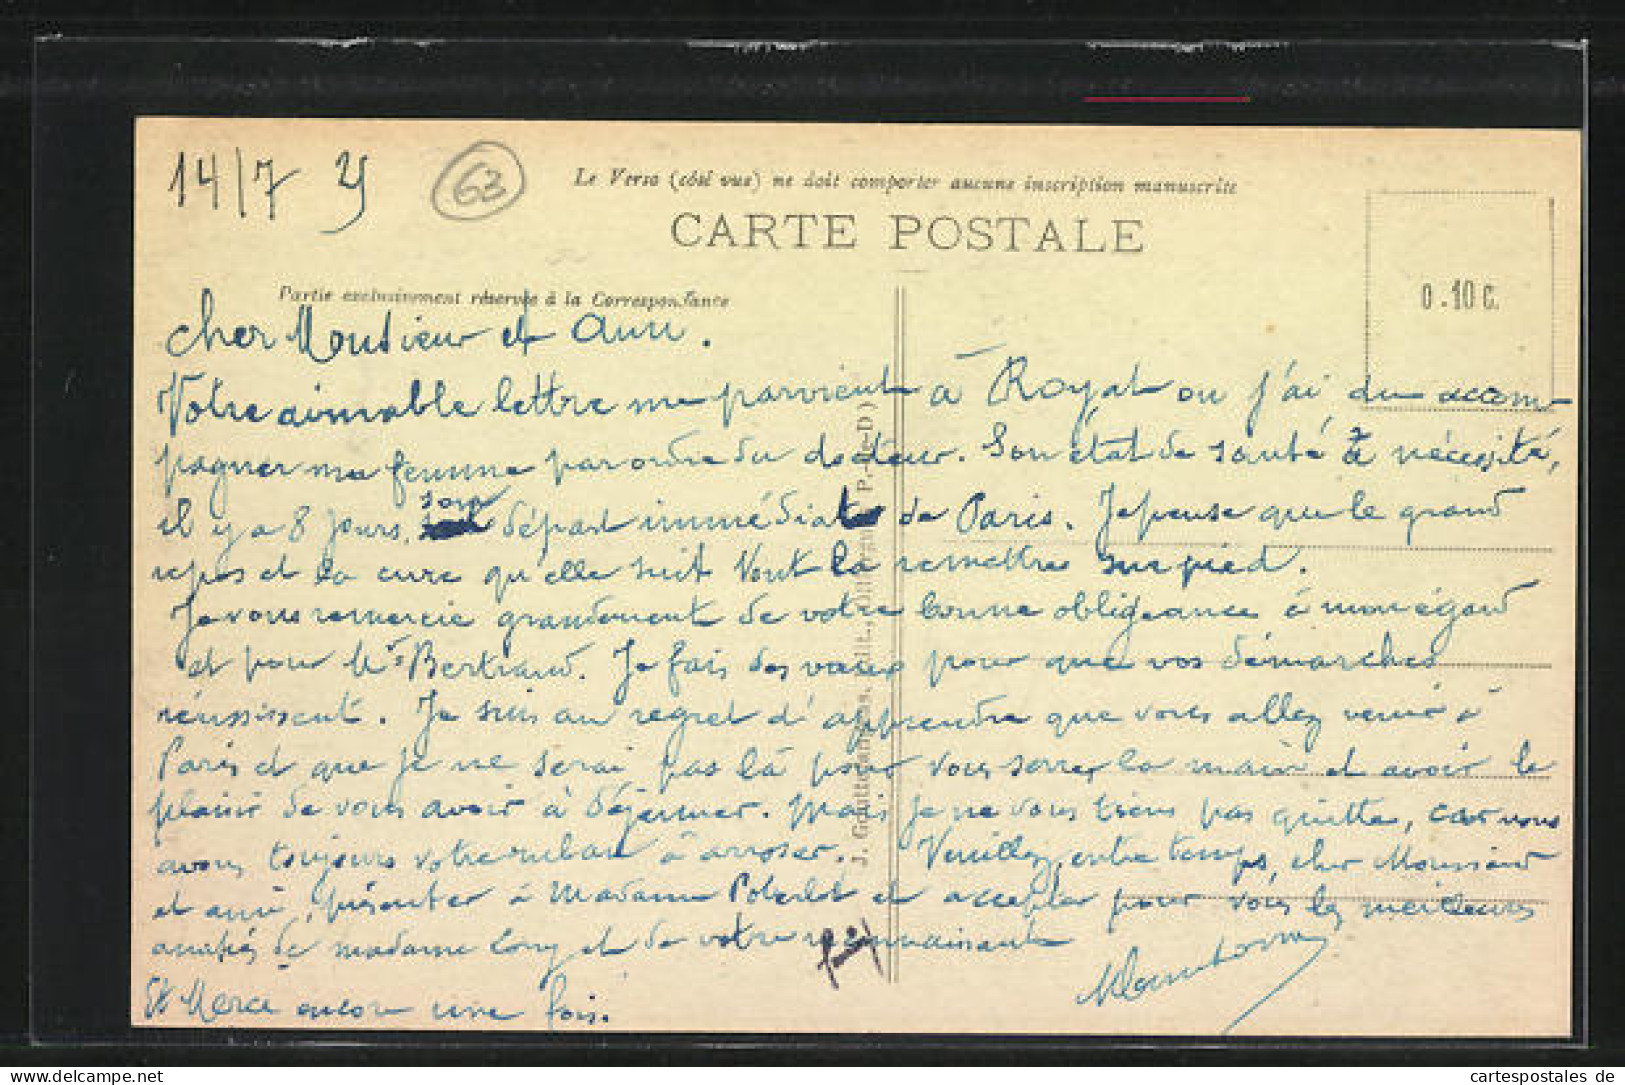 14/7
63
Le Verso (côté vue) ne doit comporter aucune inscription manuscrite
CARTE POSTALE
Partie exclusivement réservée à la Correspondance
0.10 C.
Cher Monsieur et ami.
Votre aimable lettre me parvient à Royat ou j'ai du accom-
pagner ma femme par ordre du docteur. Son état de santé a nécessité,
il y a 8 jours, son départ immédiat de Paris. Je pense que le grand
repos et la cure qu'elle suit vont la remettre sur pied.
Je vous remercie grandement de votre bonne obligeance à mon égard
et pour Mr Bertrand. Je fais des vœux pour que vos démarches
réussissent. Je suis au regret d'apprendre que vous allez venir à
Paris et que je ne serai pas là pour vous serrer la main et avoir le
plaisir de vous avoir à déjeuner. Mais je ne vous tiens pas quitte, car nous
avons toujours votre ruban à arroser. Veuillez, entre temps, cher Monsieur
et ami, présenter à Madame et accepter pour vous les meilleures
amitiés de madame et de votre reconnaissant
Et Merci encore une fois.
cartespostales de